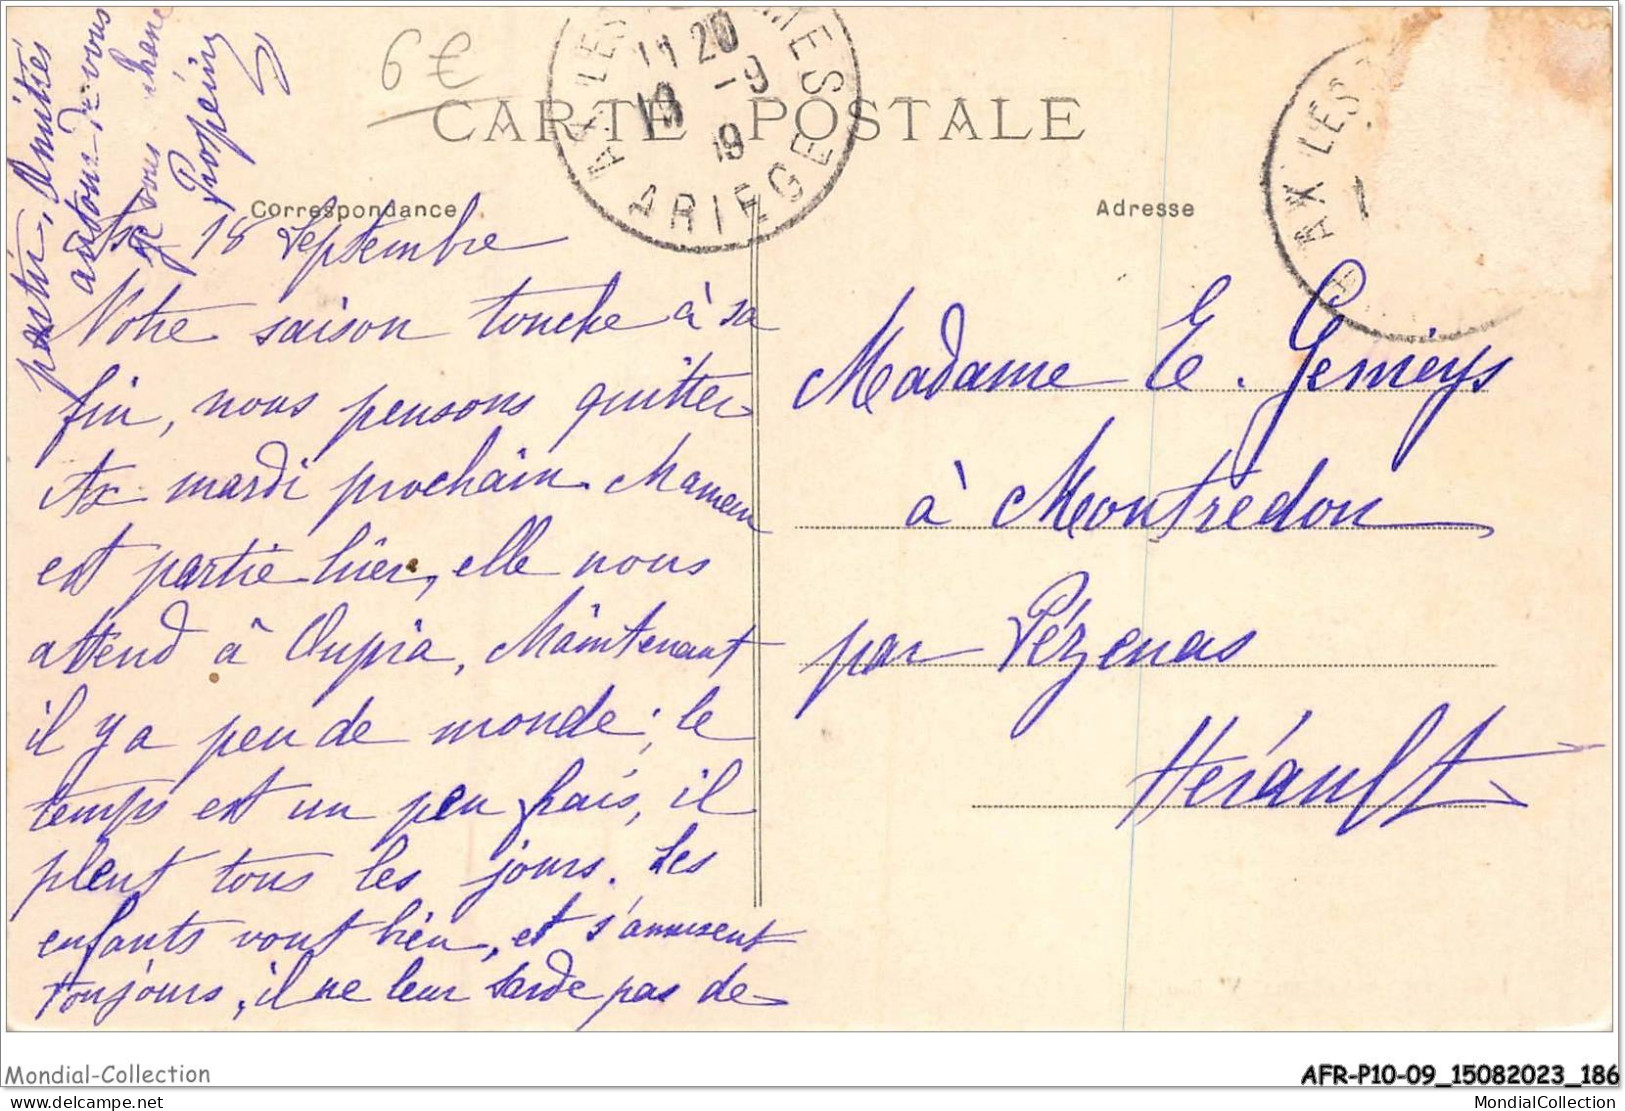 6€
CARTE POSTALE
AX LES THERMES
11 20
18 -9
19
ARIEGE
AX LES
1
Correspondance
Adresse
Ax 18 Septembre
Notre saison touche à sa
fin, nous pensons quitter
Ax mardi prochain. Maman
est partie hier, elle nous
attend à Oupia, Maintenant
il y a peu de monde; le
temps est un peu frais, il
pleut tous les jours. Les
enfants vont bien, et s'amusent
toujours, il ne leur tarde pas de
partir, Amitiés
autour de vous
je vous
Prospérine
Madame E. Gemieys
à Montredon
par Pézenas
Hérault
Mondial-Collection
AFR-P10-09_15082023_186
www.delcampe.net
MondialCollection